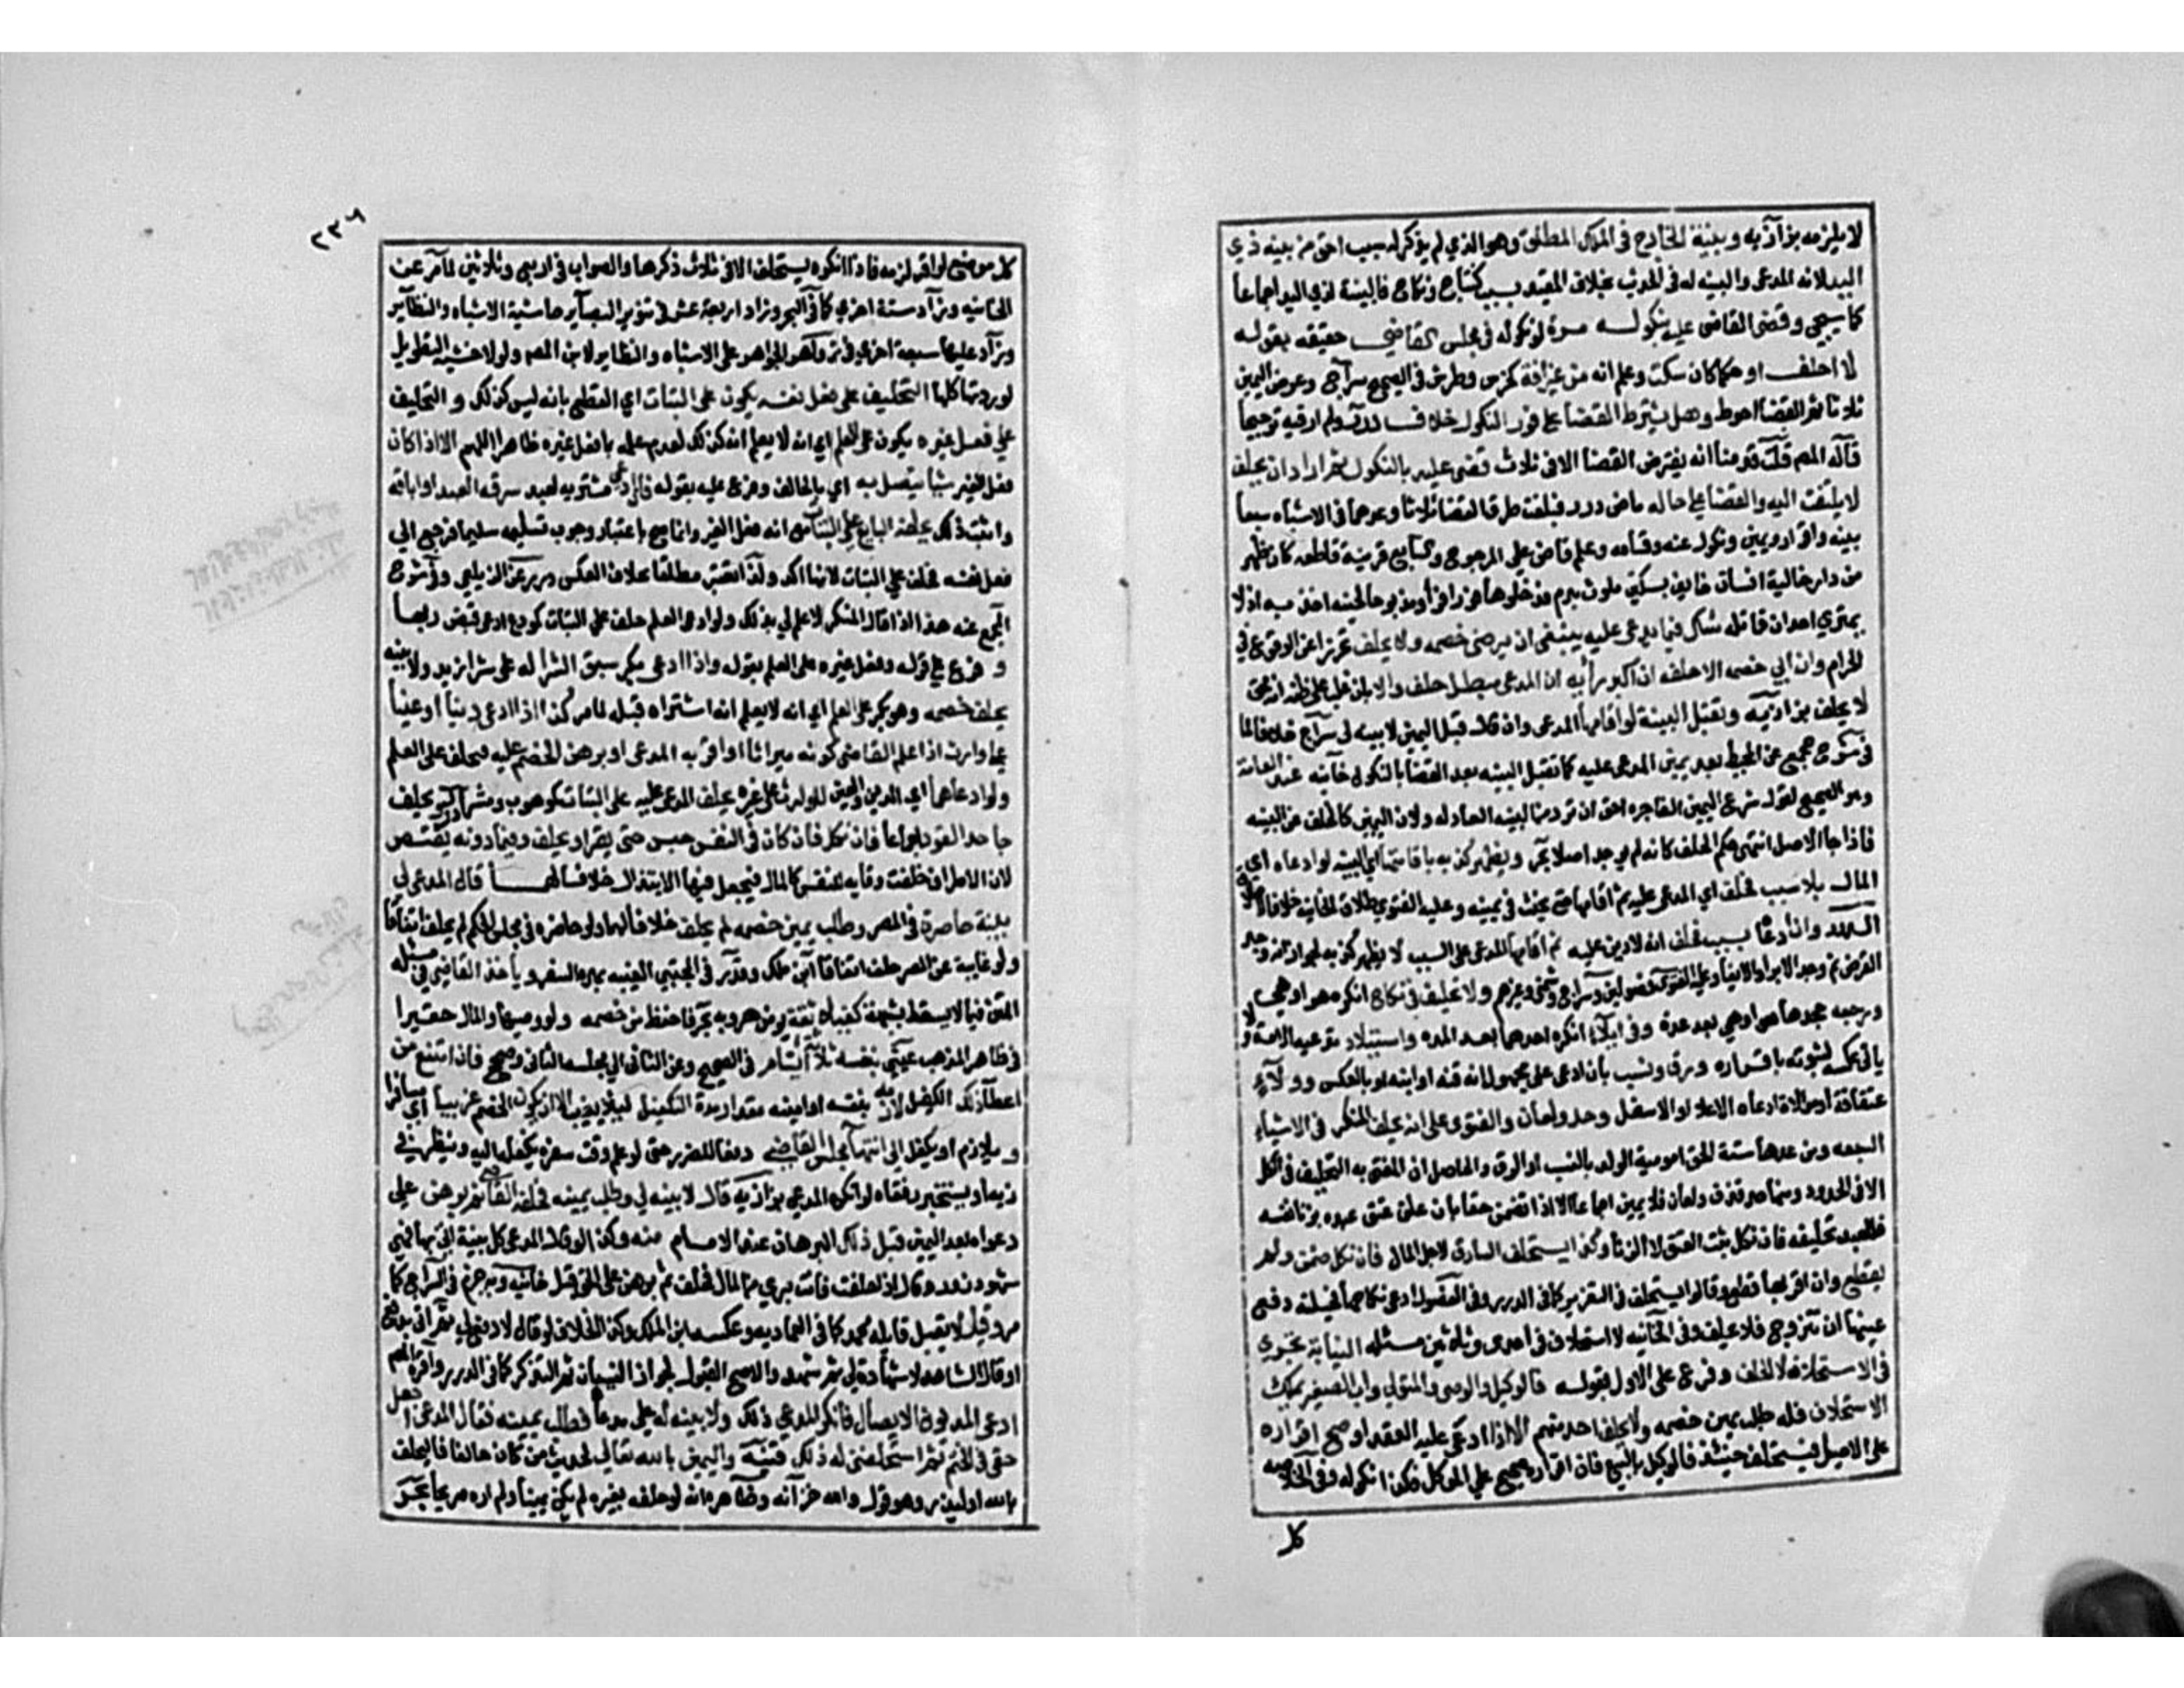 لا يلزمه بزازيه وبينة الخارج في الملك المطلق وهو الذي لم يذكر له سبب احق من بينه ذي
اليد لانه المدعي والبينه له في الحديث بخلاف المقيد بسبب كنتاج ونكاح فالبينة لذي اليد اجماعا
كما سيجي وقضى القاضي عليه بنكوله مرة لو نكوله في مجلس القاضي حقيقه بقوله
لا احلف او حكما كان سكت وعلم انه من غير افة كخرس وطرش في الصحيح سراج وعرض اليمين
ثلاثا ثم القضا احوط وهل يشترط القضا على فور النكول خلاف درر ولم ار فيه ترجيحا
قاله المص قلت قدمنا انه يفترض القضا الا في ثلاث قضى عليه بالنكول ثم اراد ان يحلف
لا يلتفت اليه والقضا على حاله ماض درر فبلغت طرق القضا ثلاثا وعدها في الاشباه سبعا
بينه واقرار ويمين ونكول عنه وقسامه وعلم قاض على المرجوح والسابع قرينة قاطعه كان ظهر
من دار خالية انسان خايف بسكين ملوث بدم فدخلوها فورا فراوا مذبوحا لحينه اخذ به اذ لا
يمتري احد ان قاتله شك فيما يدعى عليه ينبغي ان يرضي خصمه ولا يحلف تحرزا عن الوقوع في
الحرام وان ابي خصمه الا حلفه ان اكبر رأيه ان المدعي مبطل حلف والا بان غلب على ظنه انه محق
لا يحلف بزازيه وتقبل البينة لو اقامها المدعي وان قال قبل اليمين لا بينه لي سراج خلافا لما
في شرح مجمع عن المحيط بعد يمين المدعى عليه كما تقبل البينه بعد القضا بالنكول خانيه عند العامة
وهو الصحيح لقول شريح اليمين الفاجره احق ان ترد من البينه العادله ولان اليمين كالخلف عن البينه
فاذا جا الاصل انتهى حكم الخلف كانه لم يوجد اصلا بحر ويظهر كذبه باقامتها اي البينه لو ادعاه اي
المال بلا سبب فحلف اي المدعى عليه ثم اقامها حتى يحنث في يمينه وعليه الفتوى طلاق الخانيه خلافا لاطلاق
الدرر وان ادعا بسبب فحلف انه لا دين عليه ثم اقامها المدعي على السبب لا يظهر كذبه لجواز انه وجد
القرض ثم وجد الابرا او الايفا وعليه الفتوى فصولين وسراج وشمني وغيرهم ولا تحليف في نكاح انكره هو او هي
ورجعه جحدها هو او هي بعد عدة وفي ايلاء انكره احدهما بعد المده واستيلاد تدعيه الامة ولا
ياتي عكسه لثبوته باقراره ورق ونسب بان ادعى على مجهول انه قنه او ابنه او بالعكس وولاء
عتاقة او موالاة ادعاه الاعلا او الاسفل وحد ولعان والفتوى على انه يحلف المنكر في الاشياء
السبعه ومن عدها ستة الحق امومية الولد بالنسب او الرق والحاصل ان المفتى به التحليف في الكل
الا في الحدود ومنها حد قذف ولعان فلا يمين اجماعا الا اذا تضمن حقا بان علق عتق عبده بزنا نفسه
فللعبد تحليفه فان نكل ثبت العتق لا الزنا وكذا يستحلف السارق لاجل المال فان نكل ضمن ولم
يقطع وان اقر بها قطع وقالوا يستحلف في التعزير كما في الدرر وفي الفصول ادعى نكاحها فحيلة دفع
يمينها ان تتزوج فلا تحلف وفي الخانيه لا استحلاف في احدى وثلاثين مسئله النيابة تجري
في الاستحلاف لا الحلف وفرع على الاول بقوله فالوكيل والوصي والمتولي واب الصغير يملك
الاستحلاف فله طلب يمين خصمه ولا يحلف احد منهم الا اذا ادعي عليه العقد او صح اقراره
على الاصيل فيستحلف حينئذ كالوكيل بالبيع فان اقراره صحيح على الموكل فكذا نكوله وفي الخلاصه
كل
٢٣٩
كل موضع لو اقر لزمه فاذا انكره يستحلف الا في ثلاث ذكرها والصواب في اربع وثلاثين لما مر عن
الخانيه وزاد ستة اخرى كما في البحر وزاد اربعة عشر في تنوير البصاير حاشية الاشباه والنظاير
وزاد عليها سبعة اخرى في زواهر الجواهر على الاشباه والنظاير لابن المص ولولا خشية التطويل
لوردتها كلها التحليف على فعل نفسه يكون على البتات اي القطع بانه ليس كذلك والتحليف
على فعل غيره يكون على العلم اي انه لا يعلم انه كذلك لعدم علمه بما فعل غيره ظاهرا اللهم الا اذا كان
فعل الغير شيا يتصل به اي بالحالف وفرع عليه بقوله فان ادعى مشتريه العبد سرقه العبد او اباقه
واثبت ذلك يحلف البايع على البتات مع انه فعل الغير وانما صح باعتبار وجوب تسليمه سليما فرجع الى
فعل نفسه فحلف على البتات لانها اكد ولذا تعتبر مطلقا بخلاف العكس درر عن الزيلعي وفي شرح
المجمع عنه هذا اذا قال المنكر لا علم لي بذلك ولو ادعى العلم حلف على البتات كمودع ادعى قبض ربها
و فرع على قوله وفعل غيره على العلم بقوله واذا ادعى بكر سبق الشرا له على شرا زيد ولا بينه
يحلف خصمه وهو بكر على العلم اي انه لا يعلم انه اشتراه قبله لما مر كذا اذا ادعى دينا او عينا
على وارث اذا علم القاضي كونه ميراثا او اقر به المدعي او برهن الخصم عليه فيحلف على العلم
ولو ادعاهما اي الدين والعين الوارث على غيره يحلف المدعى عليه على البتات كموهوب وشرا درر ويحلف
جاحد القود اجماعا فان نكل فان كان في النفس حبس حتى يقر او يحلف وفيما دونه يقتص
لان الاطراف خلقت وقايه للنفس كالمال فيجعل فيها الابتذال خلافا لهما قال المدعي لي
بينة حاضرة في المصر وطلب يمين خصمه لم يحلف خلافا لهما ولو حاضره في مجلس الحكم لم يحلف اتفاقا
ولو غايبة عن المصر حلف اتفاقا ابن ملك وقدر في المجتبى الغيبه بمدة السفر وياخذ القاضي في مسئله
المتن فيما لا يسقط بشبهة كفيلا ثقة يؤمن هروبه بحر فاحفظ من خصمه ولو وجيها والمال حقيرا
في ظاهر المذهب عيني بنفسه ثلاثة ايام في الصحيح وعن الثاني الى مجلسه الثاني وصحح فان امتنع من
اعطا ذلك الكفيل لازمه بنفسه او امينه مقدار مدة التكفيل ليلا يغيب الا ان يكون الخصم غريبا اي مسافرا
و يلازم او يكفل الى انتها مجلس القاضي دفعا للضرر حتى لو علم وقت سفره يكفله اليه وينظر في
زيه او يستخبر رفقاه لو انكره المدعي بزازيه قال لا بينه لي وطلب يمينه فحلفه القاضي ثم برهن على
دعواه بعد اليمين قبل ذلك البرهان عند الامام منه وكذا لو قال المدعي كل بينة اتي بها فهي
شهود زور او قال اذا حلفت فانت بري من المال فحلف ثم برهن على الحق قبل خانيه وبه جزم في السراج كما
مر وقيل لا يقبل قايله محمد كما في العماديه وعكسه ابن الملك وكذا الخلاف لو قال لا دفع لي ثم اتى بدفع
او قال الشاهد لا شهادة لي ثم شهد والاصح القبول لجواز النسيان ثم التذكر كما في الدرر واقره المص
ادعى المديون الايصال فانكر المدعي ذلك ولا بينه له على مدعاه فطلب يمينه فقال المدعي اجعل
حقي في الختم ثم استحلفني له ذلك قنيه واليمين بالله تعالى لحديث من كان حالفا فاليحلف
بالله او ليذر وهو قول والله خزانه وظاهره انه لو حلفه بغيره لم يكن يمينا ولم اره صريحا بحر